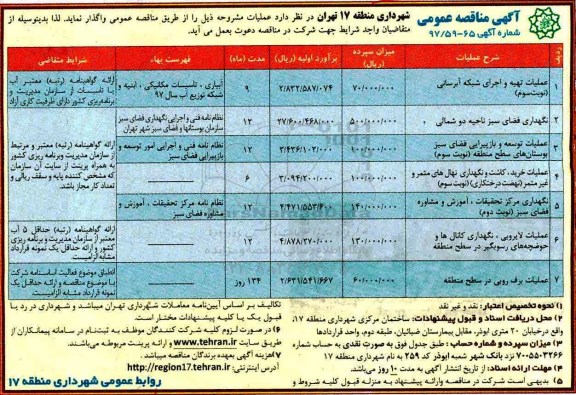 آگهی مناقصه عمومی
شماره آگهی ۶۵-۹۷/۵۹
شهرداری منطقه ۱۷ تهران در نظر دارد عملیات مشروحه ذیل را از طریق مناقصه عمومی واگذار نماید. لذا بدینوسیله از
متقاضیان واجد شرایط جهت شرکت در مناقصه دعوت بعمل می آید.
ردیف شرح عملیات میزان سپرده (ریال) برآورد اولیه (ریال) مدت (ماه) فهرست بهاء شرایط متقاضی
۱ عملیات تهیه و اجرای شبکه آبرسانی (نوبت سوم) ۷۰/۰۰۰/۰۰۰ ۲/۸۳۲/۵۸۷/۰۷۴ ۹ آبیاری ، تأسیسات مکانیکی ، ابنیه و شبکه توزیع آب سال ۹۷ ارائه گواهینامه (رتبه) معتبر آب یا تاسیسات از سازمان مدیریت و برنامه‌ریزی کشور دارای ظرفیت کاری آزاد
۲ نگهداری فضای سبز ناحیه دو شمالی ۵۰۰/۰۰۰/۰۰۰ ۲۷/۶۰۰/۴۶۸/۰۰۰ ۱۲ نظام نامه فنی و اجرایی نگهداری فضای سبز سازمان بوستانها و فضای سبز شهر تهران
۳ عملیات توسعه و بازپیرایی فضای سبز بوستان‌های سطح منطقه (نوبت سوم) ۱۰۰/۰۰۰/۰۰۰ ۳/۴۳۶/۱۰۲/۰۰۰ ۱۲ نظام نامه فنی و اجرایی امور توسعه و بازپیرایی فضای سبز ارائه گواهینامه (رتبه) معتبر و مرتبط از سازمان مدیریت وبرنامه ریزی کشور به همراه پرینت از سایت آن سازمان که مشخص کننده پایه و سقف ریالی و تعداد کار مجاز باشد.
۴ عملیات خرید، کاشت و نگهداری نهال های مثمر و غیر مثمر (نهضت درختکاری) (نوبت سوم) ۱۰۰/۰۰۰/۰۰۰ ۳/۰۹۴/۲۰۰/۰۰۰ ۶
۵ نگهداری مرکز تحقیقات ، آموزش و مشاوره فضای سبز (نوبت دوم) ۱۴۰/۰۰۰/۰۰۰ ۴/۴۷۱/۵۵۳/۴۰۰ ۱۲ نظام نامه مرکز تحقیقات ، آموزش و مشاوره فضای سبز
۶ عملیات لایروبی ، نگهداری کانال ها و حوضچه‌های رسوبگیر در سطح منطقه ۱۳۰/۰۰۰/۰۰۰ ۴/۸۷۸/۲۷۰/۰۰۰ ۱۲ ارائه گواهینامه (رتبه) حداقل ۵ آب معتبر از سازمان مدیریت و برنامه ریزی کشور و ارائه حداقل یک نمونه قرارداد مشابه الزامیست.
۷ عملیات برف روبی در سطح منطقه ۶۰/۰۰۰/۰۰۰ ۲/۶۳۱/۵۴۱/۶۶۷ ۱۳۴ روز انطباق موضوع فعالیت اساسنامه شرکت با موضوع مناقصه و ارائه حداقل یک نمونه قرارداد مشابه الزامیست.
۱) نحوه تخصیص اعتبار: نقد و غیر نقد
۲) محل دریافت اسناد و قبول پیشنهادات: ساختمان مرکزی شهرداری منطقه ۱۷،
واقع درخیابان ۲۰ متری ابوذر، مقابل بیمارستان ضیائیان، طبقه دوم، واحد قراردادها
۳) میزان سپرده و شماره حساب : طبق جدول فوق به صورت نقدی به حساب شماره
۷۰۰۵۵۰۳۲۶۶ نزد بانک شهر شعبه ابوذر کد ۲۵۹ به نام شهرداری منطقه ۱۷
۴) مهلت ارائه اسناد: از تاریخ انتشار آگهی به مدت ۱۰ روز می‌باشد.
۵) بدیهی است شرکت در مناقصه وارائه پیشنهاد به منزله قبول کلیه شروط و
تکالیف بر اساس آیین‌نامه معاملات شهرداری تهران میباشد و شهرداری در رد یا
قبول یک یا کلیه پیشنهادات مختار است.
۶) در صورت لزوم کلیه شرکت کنندگان موظف به ثبت‌نام در سامانه پیمانکاران از
طریق سایت www.tehran.ir و ارائه پرینت مربوطه می‌باشند.
۷) هزینه آگهی بعهده برندگان مناقصه میباشد.
آدرس اینترنتی: http://region17.tehran.ir
روابط عمومی شهرداری منطقه ۱۷